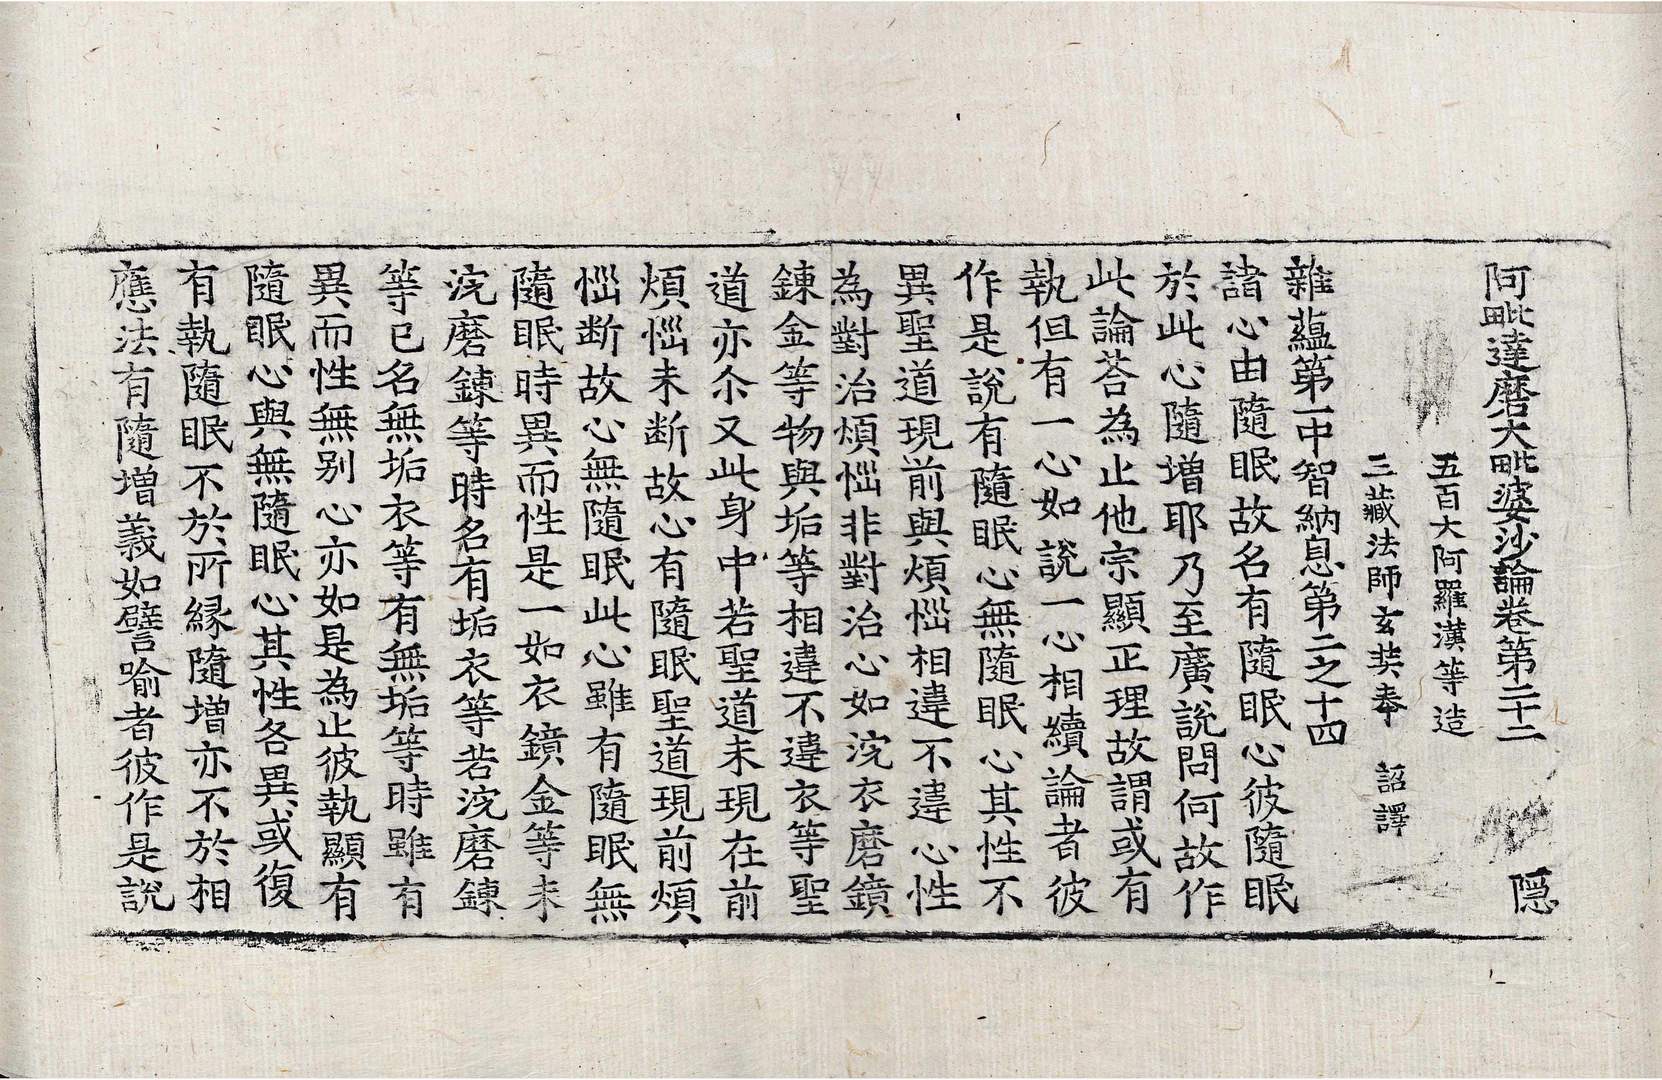 阿毗達磨大毗婆沙論卷第二十二 隱
五百大阿羅漢等造
三藏法師玄奘奉 詔譯
雜蘊第一中智納息第二之十四
諸心由隨眠故名有隨眠心彼隨眠
於此心隨增耶乃至廣說問何故作
此論荅為止他宗顯正理故謂或有
執但有一心如說一心相續論者彼
作是說有隨眠心無隨眠心其性不
異聖道現前與煩惱相違不違心性
為對治煩惱非對治心如浣衣磨鏡
鍊金等物與垢等相違不違衣等聖
道亦尒又此身中若聖道未現在前
煩惱未斷故心有隨眠聖道現前煩
惱斷故心無隨眠此心雖有隨眠無
隨眠時異而性是一如衣鏡金等未
浣磨鍊等時名有垢衣等若浣磨鍊
等已名無垢衣等有無垢等時雖有
異而性無別心亦如是為止彼執顯有
隨眠心與無隨眠心其性各異或復
有執隨眠不於所緣隨增亦不於相
應法有隨增義如譬喻者彼作是說